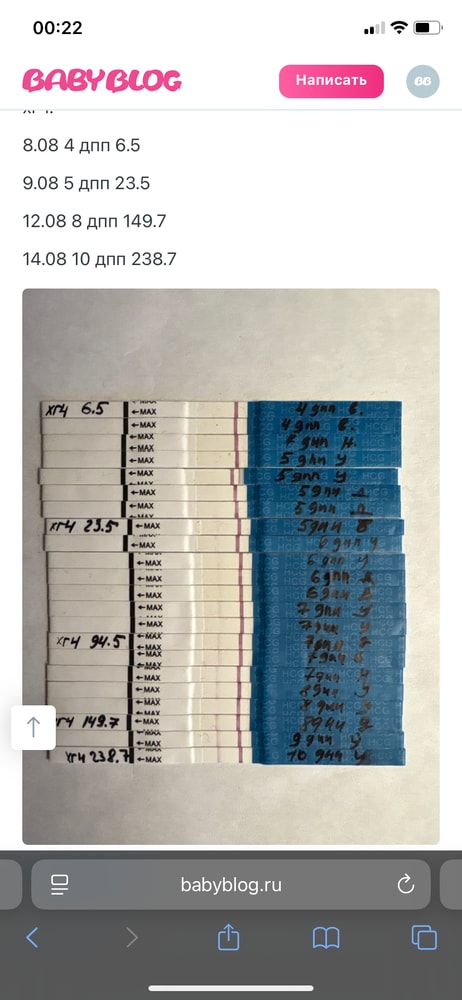 00:22
BABYBLOG
Написать
8.08 4 дпп 6.5
9.08 5 дпп 23.5
12.08 8 дпп 149.7
14.08 10 дпп 238.7
хгч 6.5
←MAX
4 дпп в.
←MAX
4 дпп в.
←MAX
дпп н.
←MAX
5 дпп у
←MAX
5 дпп у
←MAX
5 дпп д
←MAX
5 дпп д
хгч 23.5
←MAX
5 дпп в
←MAX
6 дпп у
←MAX
6 дпп у
←MAX
6 дпп д
←MAX
6 дпп в
←MAX
7 дпп у
←MAX
7 дпп у
хгч 94.5
←MAX
7 дпп
←MAX
7 дпп
←MAX
7 дпп
←MAX
8 дпп у
←MAX
8 дпп
хгч 149.7
←MAX
8 дпп
←MAX
9 дпп у
хгч 238.7
←MAX
10 дпп у
babyblog.ru